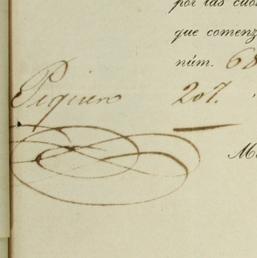 por las cuo
que comenz
núm. 68
207.
M